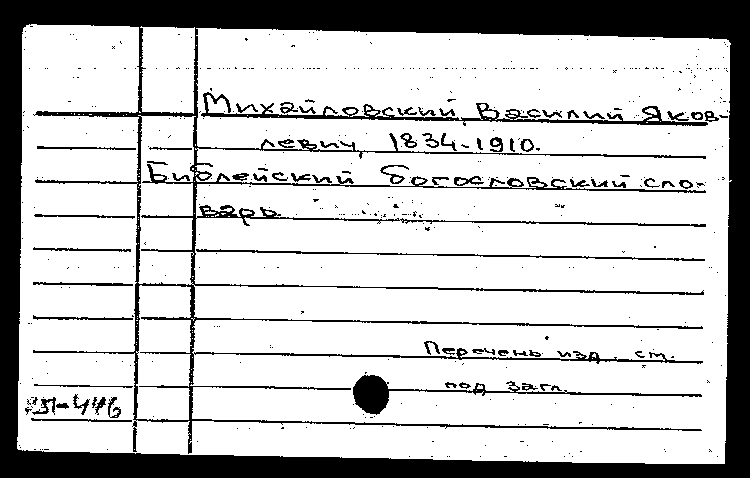 Михайловский, Василий Яков-
левич, 1834-1910.
Библейский богословский сло-
варь
Перечень изд. ст.
под загл.